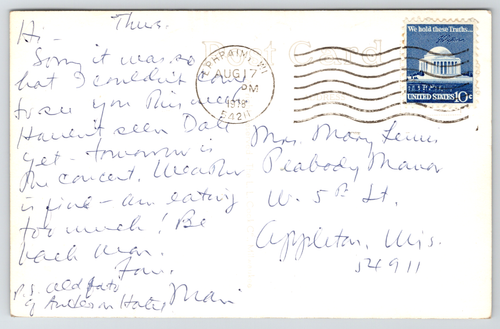 Thurs.
Hi -
Sorry it was so
hot I couldn't come
to see you this week
Haven't seen Dale
yet - tomorrow is
the concert. Weather
is fine - am eating
too much! Be
back Mon.
Love.
Mari
P.S. old foto
of Anderson Hotel
Post Card
EPHRAIM, WI
AUG 17
PM
1978
54211
We hold these Truths...
UNITED STATES 10c
Mrs. Mary
Peabody Manor
W. 5th St.
Appleton, Wis.
54911